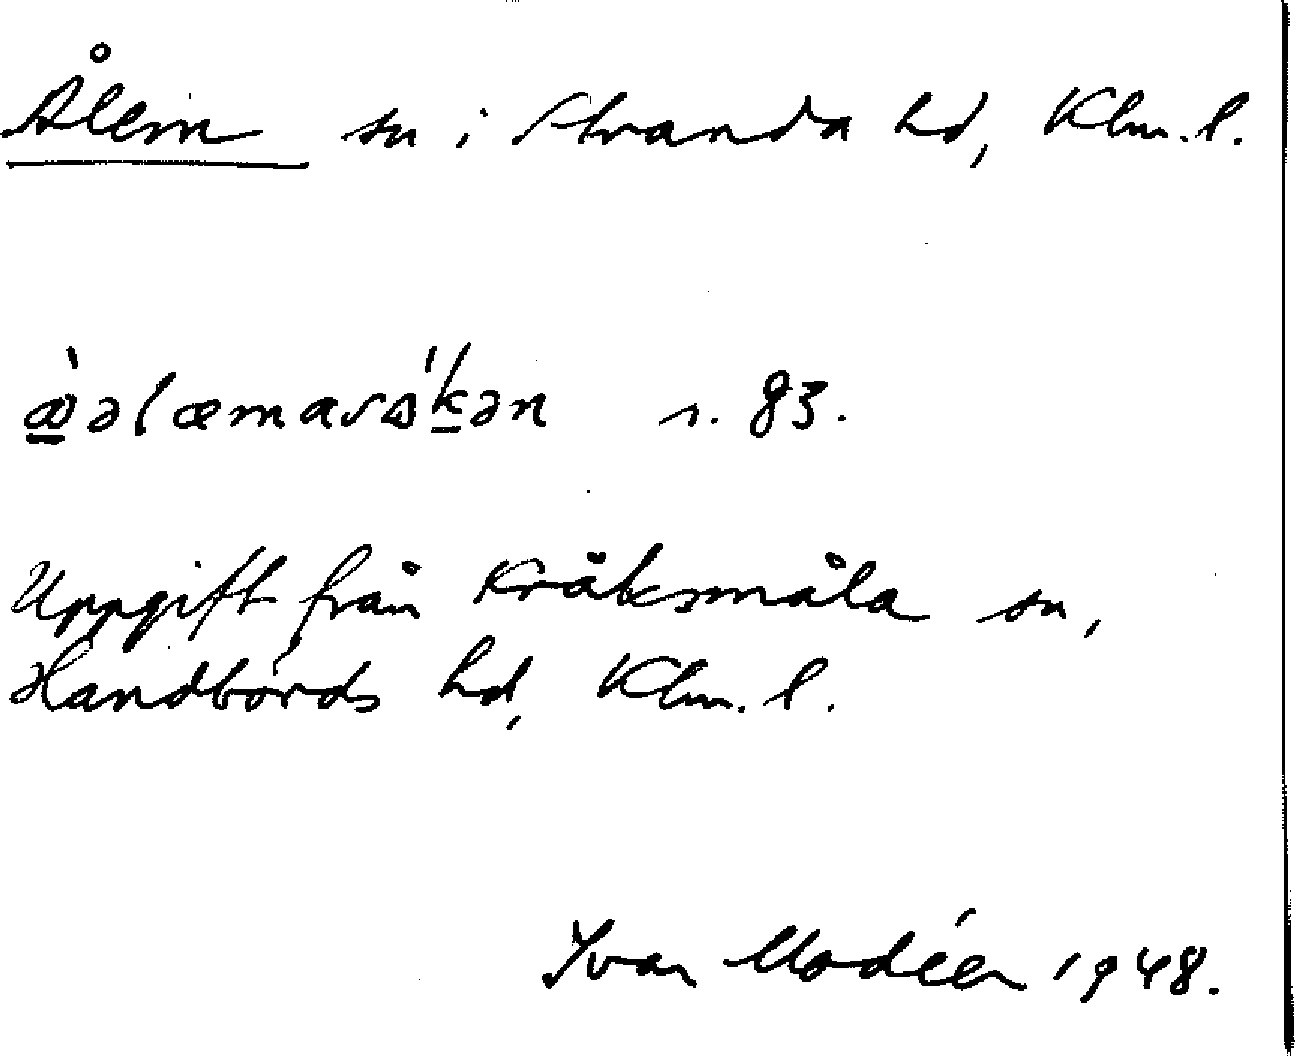 Ålem sn i Stranda hd, Klm. l.
s. 83.
Uppgift från Kråksmåla sn,
Handbörds hd, Klm. l.
Ivar Modéer 1948.